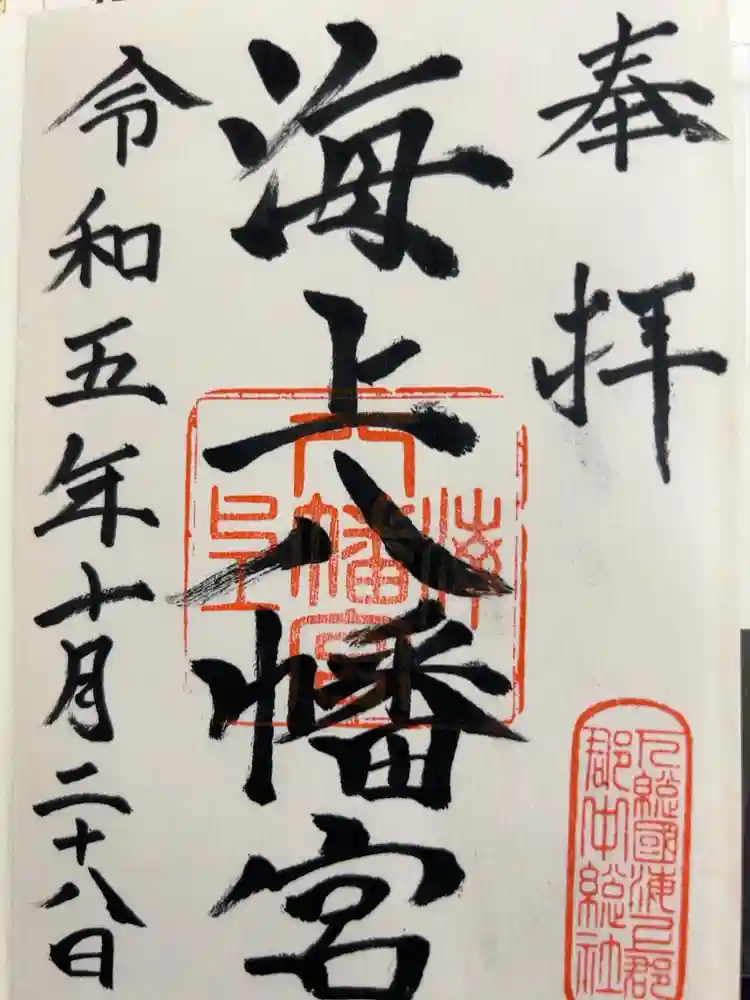 奉拝
海上八幡宮
令和五年十月二十八日
下総國海上郡
郡中総社